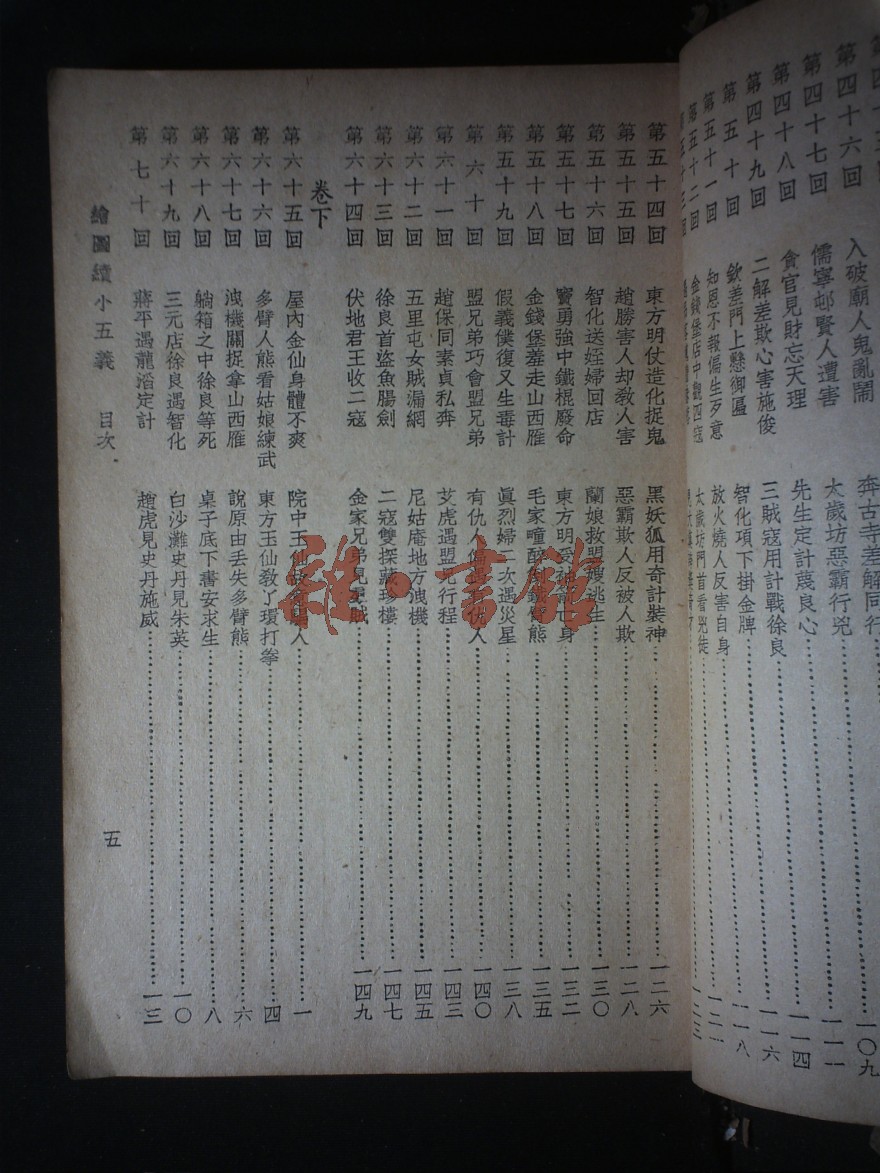 第四十六回 入破廟人鬼亂鬧 奔古寺差解同行 一〇九
第四十七回 儒寧邨賢人遭害 太歲坊惡霸行兇 一一一
第四十八回 貪官見財忘天理 先生定計蔑良心 一一四
第四十九回 二解差欺心害施俊 三賊寇用計戰徐良 一一六
第五十回 欽差門上懸御匾 智化項下掛金牌 一一八
第五十一回 知恩不報偏生歹意 放火燒人反害自身 一二一
第五十二回 金錢堡店中觀四寇 太歲坊門首看兇徒 一二三
第五十三回
第五十四回 東方明仗造化捉鬼 黑妖狐用奇計裝神 一二六
第五十五回 趙勝害人却教人害 惡霸欺人反被人欺 一二八
第五十六回 智化送姪婦回店 蘭娘救盟嫂逃生 一三〇
第五十七回 竇勇強中鐵棍廢命 東方明受 身 一三二
第五十八回 金錢堡羞走山西雁 毛家疃醉 臂熊 一三五
第五十九回 假義僕復又生毒計 眞烈婦二次遇災星 一三八
第六十回 盟兄弟巧會盟兄弟 有仇人偏遇有仇人 一四〇
第六十一回 趙保同素貞私奔 艾虎遇盟兄行程 一四三
第六十二回 五里屯女賊漏網 尼姑庵地方洩機 一四五
第六十三回 徐良首盜魚腸劍 二寇雙探藏珍樓 一四七
第六十四回 伏地君王收二寇 金家兄弟見 賊 一四九
卷下
第六十五回 屋內金仙身體不爽 院中玉仙 人 一
第六十六回 多臂人熊看姑娘練武 東方玉仙敎了環打拳 四
第六十七回 洩機關捉拿山西雁 說原由丟失多臂熊 六
第六十八回 躺箱之中徐良等死 桌子底下書安求生 八
第六十九回 三元店徐良遇智化 白沙灘史丹見朱英 一〇
第七十回 蔣平遇龍滔定計 趙虎見史丹施威 一三
繪圖續小五義 目次
五
雜·書館